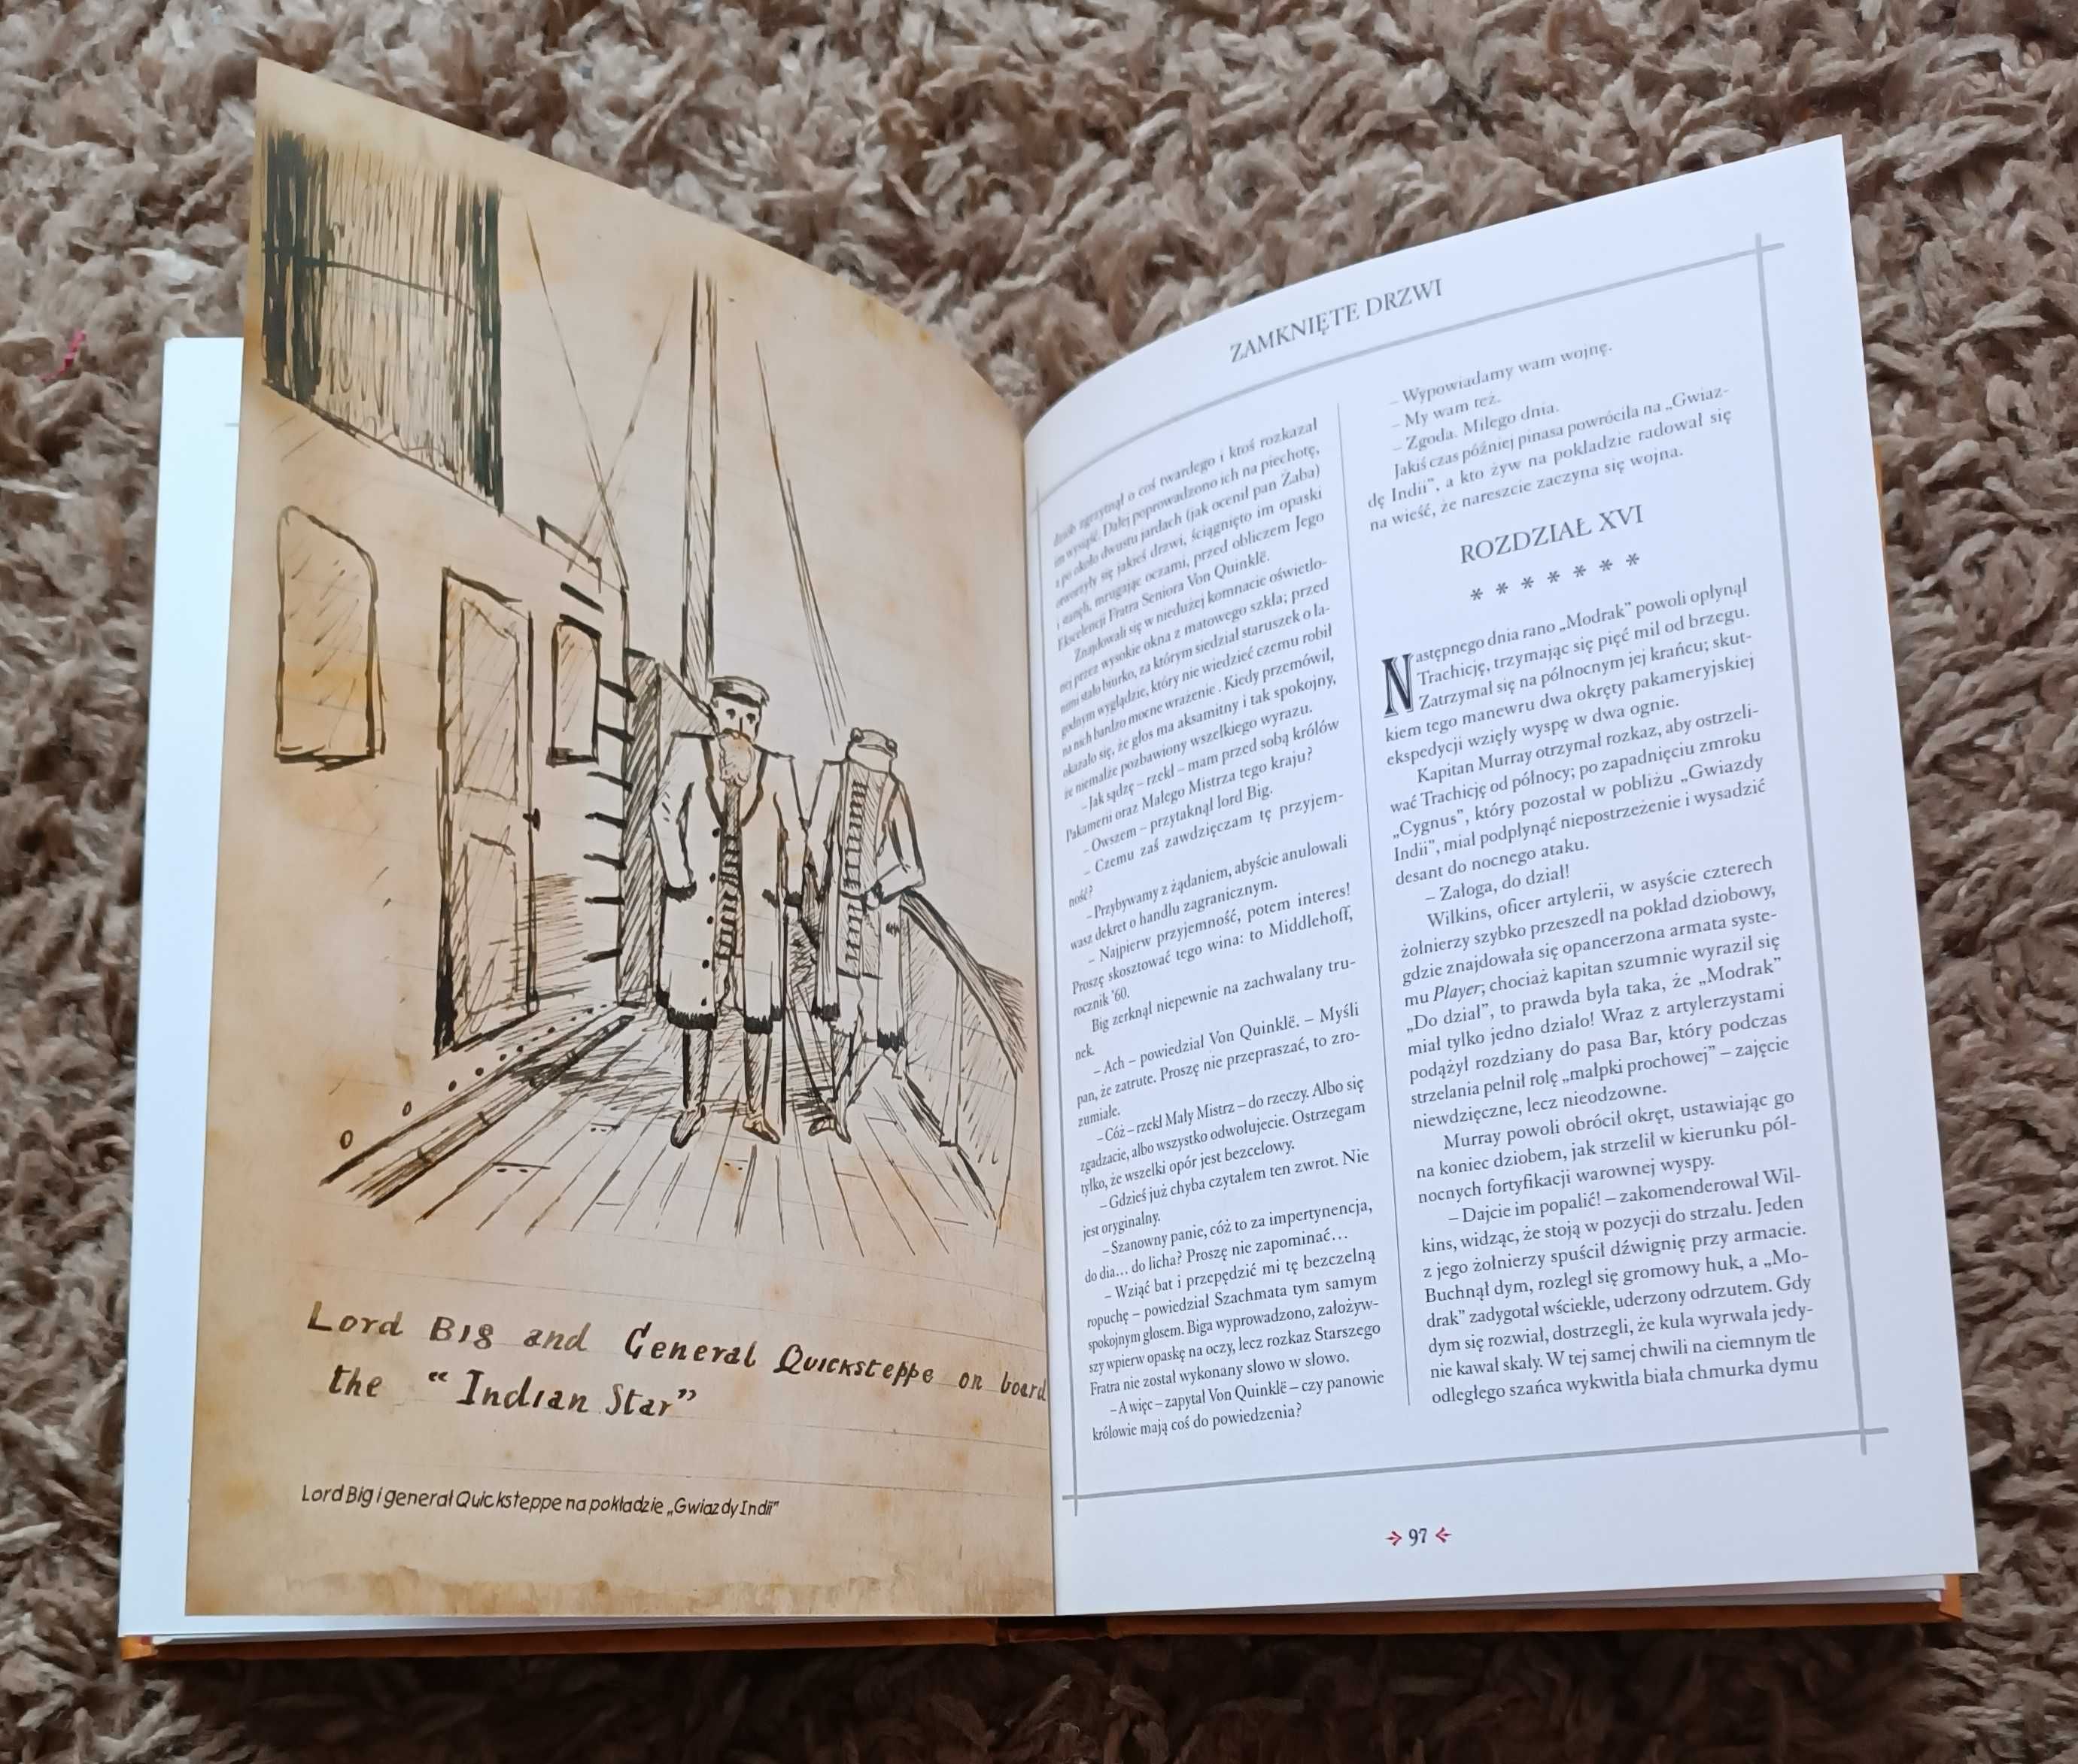 Lord Big and General Quicksteppe on board
the “Indian Star”
Lord Big i generał Quicksteppe na pokładzie „Gwiazdy Indii”
ZAMKNIĘTE DRZWI
dziób zgrzytnął o coś twardego i ktoś rozkazał
im wysiąść. Dalej poprowadzono ich na piechotę,
a po około dwustu jardach (jak ocenił pan Żaba)
otworzyły się jakieś drzwi, ściągnięto im opaski
i stanęli, mrugając oczami, przed obliczem Jego
Ekscelencji Fratra Seniora Von Quinklë.
Znajdowali się w niedużej komnacie oświetlo-
nej przez wysokie okna z matowego szkła; przed
nimi stało biurko, za którym siedział staruszek o ła-
godnym wyglądzie, który nie wiedzieć czemu robił
na nich bardzo mocne wrażenie. Kiedy przemówił,
okazało się, że głos ma aksamitny i tak spokojny,
że niemalże pozbawiony wszelkiego wyrazu.
– Jak sądzę – rzekł – mam przed sobą królów
Pakamerii oraz Małego Mistrza tego kraju?
– Owszem – przytaknął lord Big.
– Czemu zaś zawdzięczam tę przyjem-
ność?
– Przybywamy z żądaniem, abyście anulowali
wasz dekret o handlu zagranicznym.
– Najpierw przyjemność, potem interes!
Proszę skosztować tego wina: to Middlehoff,
rocznik ’60.
Big zerknął niepewnie na zachwalany tru-
nek.
– Ach – powiedział Von Quinklë. – Myśli
pan, że zatrute. Proszę nie przepraszać, to zro-
zumiałe.
– Cóż – rzekł Mały Mistrz – do rzeczy. Albo się
zgadzacie, albo wszystko odwołujecie. Ostrzegam
tylko, że wszelki opór jest bezcelowy.
– Gdzieś już chyba czytałem ten zwrot. Nie
jest oryginalny.
– Szanowny panie, cóż to za impertynencja,
do dia… do licha? Proszę nie zapominać…
– Wziąć bat i przepędzić mi tę bezczelną
ropuchę – powiedział Szachmata tym samym
spokojnym głosem. Biga wyprowadzono, założyw-
szy wpierw opaskę na oczy, lecz rozkaz Starszego
Fratra nie został wykonany słowo w słowo.
– A więc – zapytał Von Quinklë – czy panowie
królowie mają coś do powiedzenia?
– Wypowiadamy wam wojnę.
– My wam też.
– Zgoda. Miłego dnia.
Jakiś czas później pinasa powróciła na „Gwiaz-
dę Indii”, a kto żyw na pokładzie radował się
na wieść, że nareszcie zaczyna się wojna.
ROZDZIAŁ XVI
* * * * * * *
Następnego dnia rano „Modrak” powoli opłynął
Trachicję, trzymając się pięć mil od brzegu.
Zatrzymał się na północnym jej krańcu; skut-
kiem tego manewru dwa okręty pakameryjskiej
ekspedycji wzięły wyspę w dwa ognie.
Kapitan Murray otrzymał rozkaz, aby ostrzeli-
wać Trachicję od północy; po zapadnięciu zmroku
„Cygnus”, który pozostał w pobliżu „Gwiazdy
Indii”, miał podpłynąć niepostrzeżenie i wysadzić
desant do nocnego ataku.
– Załoga, do dział!
Wilkins, oficer artylerii, w asyście czterech
żołnierzy szybko przeszedł na pokład dziobowy,
gdzie znajdowała się opancerzona armata syste-
mu Player; chociaż kapitan szumnie wyraził się
„Do dział”, to prawda była taka, że „Modrak”
miał tylko jedno działo! Wraz z artylerzystami
podążył rozdziany do pasa Bar, który podczas
strzelania pełnił rolę „małpki prochowej” – zajęcie
niewdzięczne, lecz nieodzowne.
Murray powoli obrócił okręt, ustawiając go
na koniec dziobem, jak strzelił w kierunku pół-
nocnych fortyfikacji warownej wyspy.
– Dajcie im popalić! – zakomenderował Wil-
kins, widząc, że stoją w pozycji do strzału. Jeden
z jego żołnierzy spuścił dźwignię przy armacie.
Buchnął dym, rozległ się gromowy huk, a „Mo-
drak” zadygotał wściekle, uderzony odrzutem. Gdy
dym się rozwiał, dostrzegli, że kula wyrwała jedy-
nie kawał skały. W tej samej chwili na ciemnym tle
odległego szańca wykwitła biała chmurka dymu
97